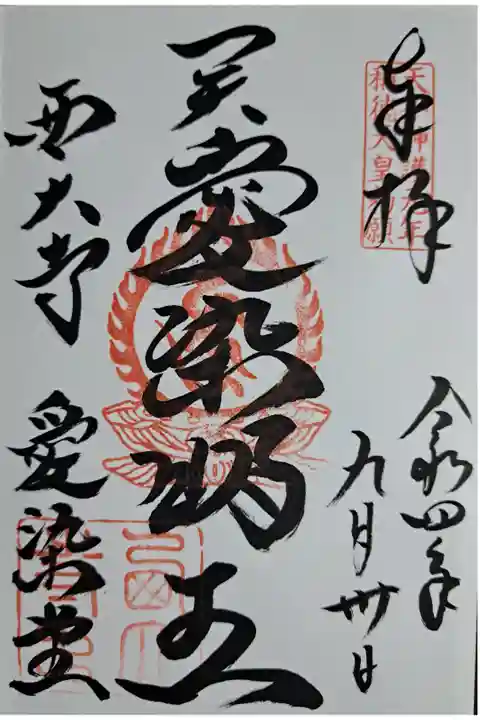 奉拝
天平神護元年
称徳天皇勅願
令和四年
九月卅日
愛染明王
西大寺 愛染堂